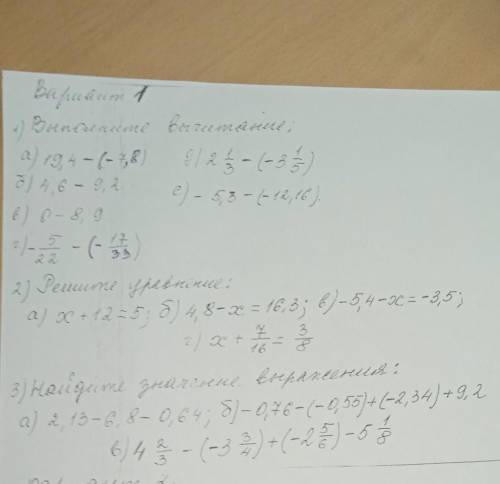 Вариант 1
1) Выполните вычитание:
а) 19,4 - (-7,8)   д) 2 1/3 - (-3 1/5)
б) 4,6 - 9,2   е) - 5,3 - (-12,16).
в) 0 - 8,9
г) - 5/22 - (- 17/33)
2) Решите уравнение:
а) x + 12 = 5; б) 4,8 - x = 16,3; в) -5,4 - x = -3,5;
г) x + 7/16 = 3/8
3) Найдите значение выражения:
а) 2,13 - 6,8 - 0,64; б) -0,76 - (-0,55) + (-2,34) + 9,2
в) 4 2/3 - (-3 3/4) + (-2 5/6) - 5 1/8